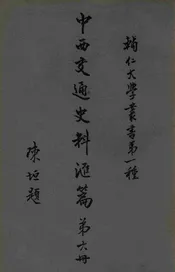 輔仁大學叢書第一種
中西交通史料匯篇 第六冊
陳垣題